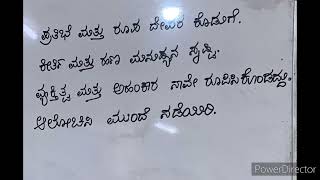 ಪ್ರತಿಭೆ ಮತ್ತು ರೂಪ ದೇವರ ಕೊಡುಗೆ.
ಕೀರ್ತಿ ಮತ್ತು ಹಣ ಮನುಷ್ಯನ ಸೃಷ್ಟಿ.
ವ್ಯಕ್ತಿತ್ವ ಮತ್ತು ಅಹಂಕಾರ ನಾವೇ ರೂಪಿಸಿಕೊಂಡದ್ದು.
ಆಲೋಚಿಸಿ ಮುಂದೆ ನಡೆಯಿರಿ.
PowerDirector